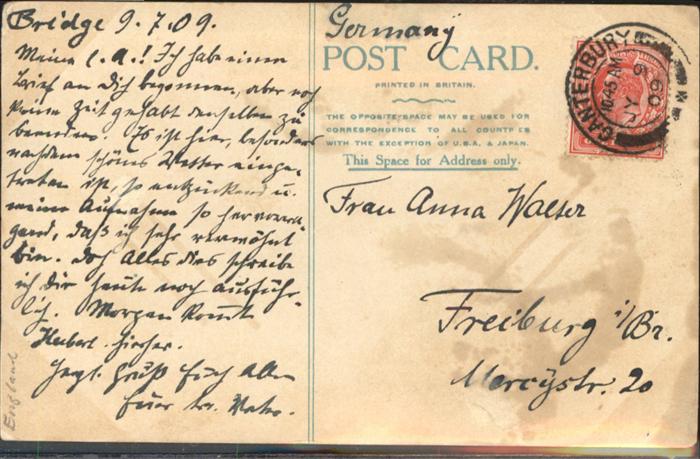 Bridge 9.7.09.
Meine l. A.! Ich habe einen
Brief an dich begonnen, aber noch
keine Zeit gehabt denselben zu
beenden. Es ist hier, besonders
nachdem schönes Wetter einge-
treten ist, so entzückend u.
meine Aufnahme so hervorra-
gend, daß ich sehr verwöhnt
bin. Doch Alles dies schreibe
ich dir heute noch ausführ-
lich. Morgen kommt
Hubert hierher.
Herzl. Gruß Euch Allen
Euer tr. Vater.
England
Germany
POST CARD.
PRINTED IN BRITAIN.
THE OPPOSITE SPACE MAY BE USED FOR
CORRESPONDENCE TO ALL COUNTRIES
WITH THE EXCEPTION OF U.S.A. & JAPAN.
This Space for Address only.
CANTERBURY
10.45 AM
JY 9
09
Frau Anna Walter
Freiburg i/Br.
Mercystr. 20